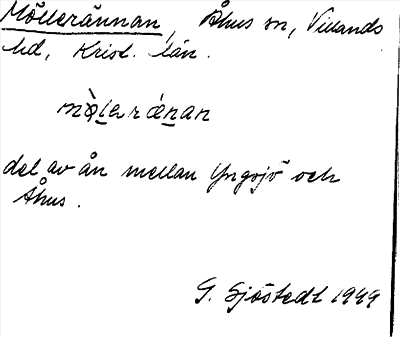 Möllerännan, Åhus sn, Villands
hd, Krist. län.
mø̀ler ǽnan
del av ån mellan Yngsjö och
Åhus.
G. Sjöstedt 1949